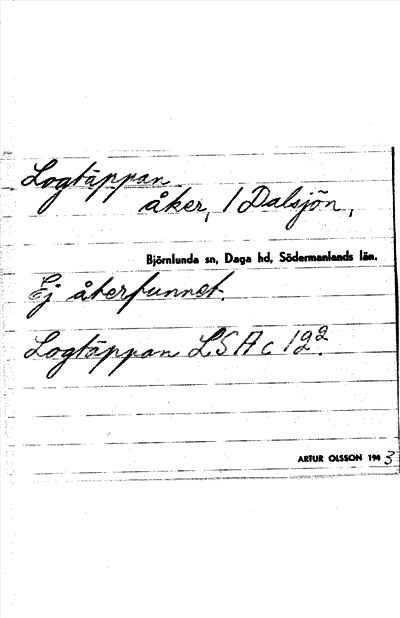 Logtäppan
åker, 1 Dalsjön,
Björnlunda sn, Daga hd, Södermanlands län.
Ej återfunnet.
Logtäppan LSA c 12²:
ARTUR OLSSON 1943